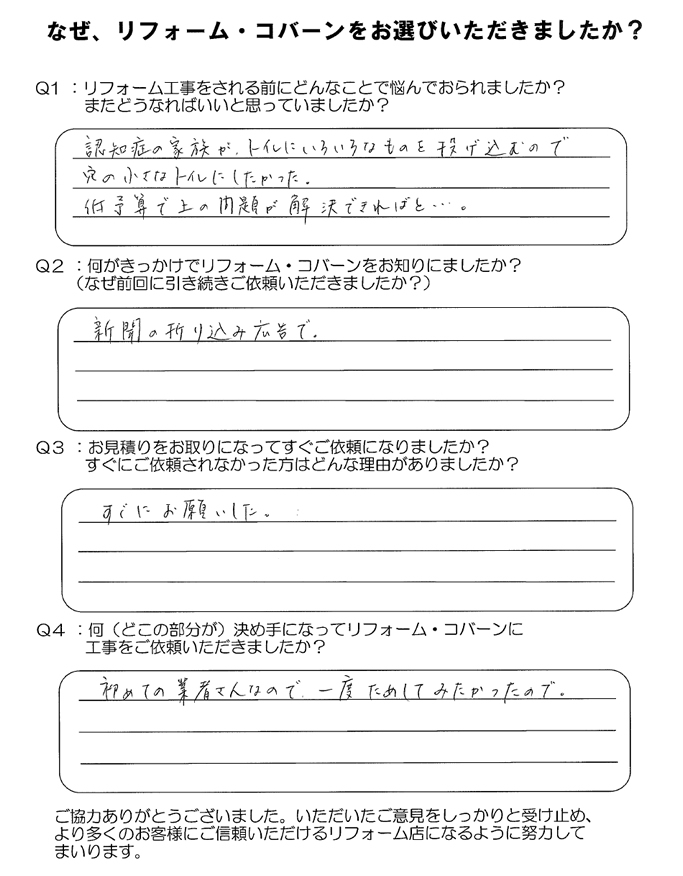 なぜ、リフォーム・コバーンをお選びいただきましたか？
Q1 ：リフォーム工事をされる前にどんなことで悩んでおられましたか？
またどうなればいいと思っていましたか？
認知症の家族が、トイレにいろいろなものを投げ込むので
穴の小さなトイレにしたかった。
低予算で上の問題が解決できればと…。
Q2 ：何がきっかけでリフォーム・コバーンをお知りにましたか？
（なぜ前回に引き続きご依頼いただきましたか？）
新聞の折り込み広告で。
Q3 ：お見積りをお取りになってすぐご依頼になりましたか？
すぐにご依頼されなかった方はどんな理由がありましたか？
すぐにお願いした。
Q4 ：何（どこの部分が）決め手になってリフォーム・コバーンに
工事をご依頼いただきましたか？
初めての業者さんなので、一度ためしてみたかったので。
ご協力ありがとうございました。いただいたご意見をしっかりと受け止め、
より多くのお客様にご信頼いただけるリフォーム店になるように努力して
まいります。